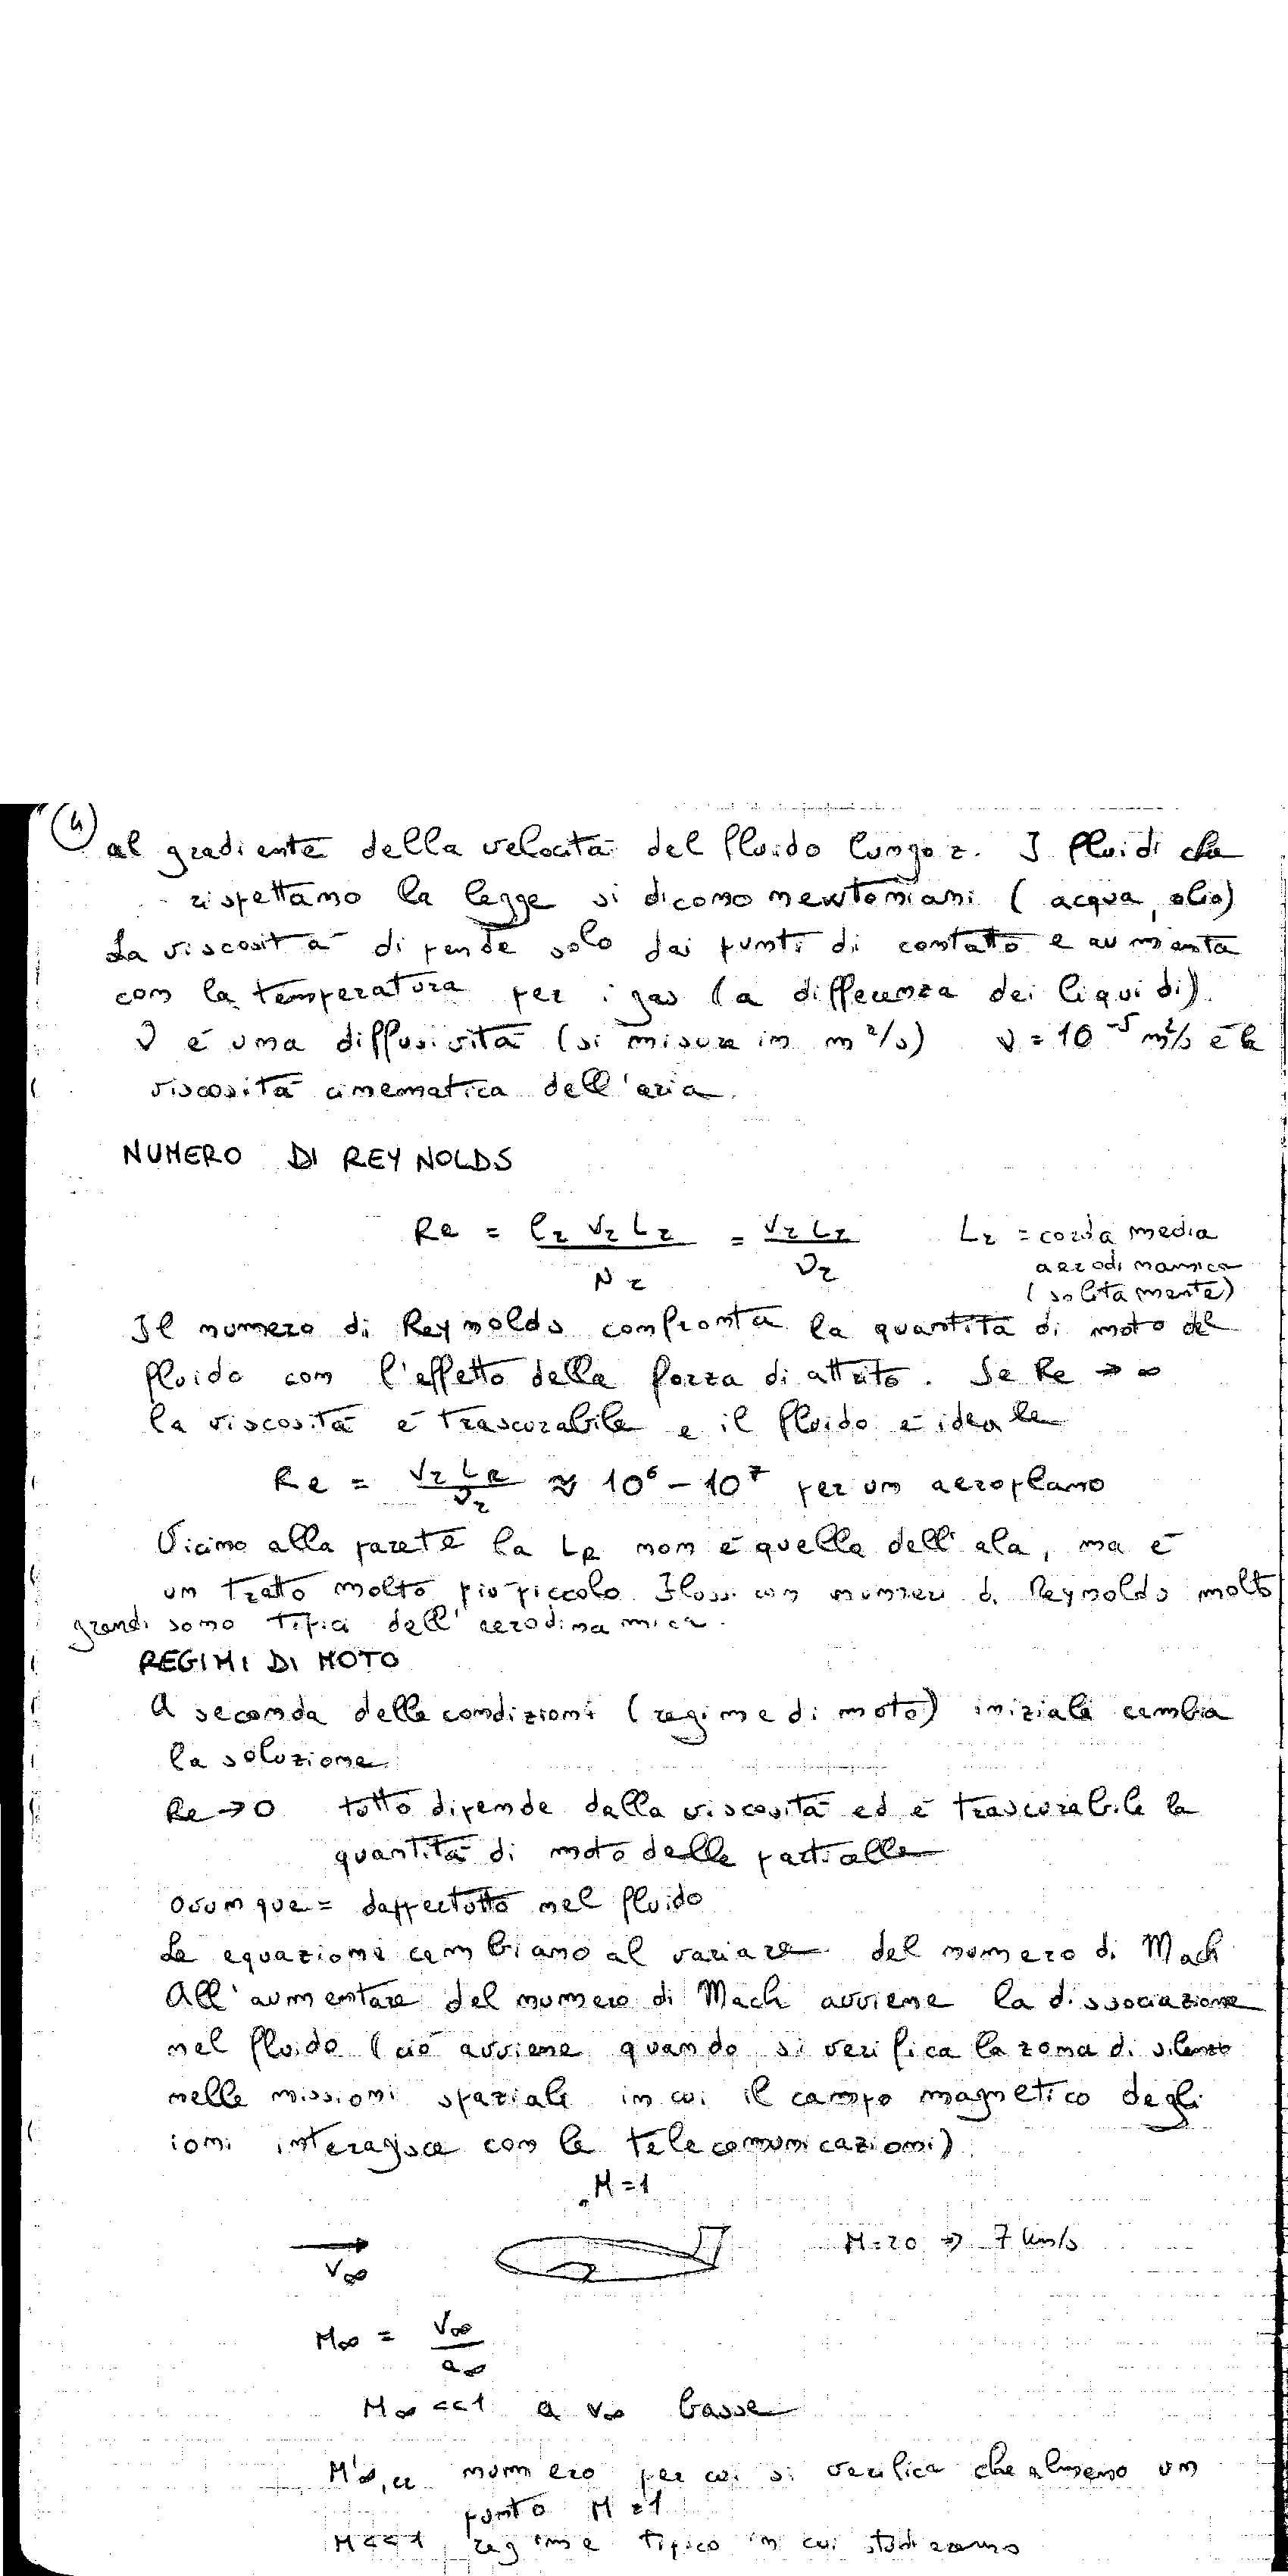 4
al gradiente della velocità del fluido lungo z. I fluidi che
rispettano la legge si dicono newtoniani (acqua, olio)
La viscosità dipende solo dai punti di contatto e aumenta
con la temperatura per i gas (a differenza dei liquidi).
ν è una diffusività (si misura in m²/s) ν = 10⁻⁵ m²/s è la
viscosità cinematica dell'aria.
NUMERO DI REYNOLDS
Re = ρr Vr Lr / μr = Vr Lr / νr Lr = corda media
aerodinamica
(solitamente)
Il numero di Reynolds confronta la quantità di moto del
fluido con l'effetto della forza di attrito. Se Re → ∞
la viscosità è trascurabile e il fluido è ideale
Re = Vr LR / νr ≈ 10⁶ - 10⁷ per un aeroplano
Vicino alla parete la LR non è quella dell'ala, ma è
un tratto molto più piccolo. Flussi con numeri di Reynolds molto
grandi sono tipici dell'aerodinamica.
REGIMI DI MOTO
A seconda delle condizioni (regime di moto) iniziali cambia
la soluzione
Re → 0 tutto dipende dalla viscosità ed è trascurabile la
quantità di moto delle particelle
ovunque = dappertutto nel fluido
Le equazioni cambiano al variare del numero di Mach
All'aumentare del numero di Mach avviene la dissociazione
nel fluido (ciò avviene quando si verifica la zona di silenzio
nelle missioni spaziali in cui il campo magnetico degli
ioni interagisce con le telecomunicazioni)
M=1
V∞ M=20 ⇒ 7 km/s
M∞ = V∞ / a∞
M∞ << 1 a V∞ basse
M'∞,cr numero per cui si verifica che almeno un
punto M=1
M<<1 regime tipico in cui studieremo